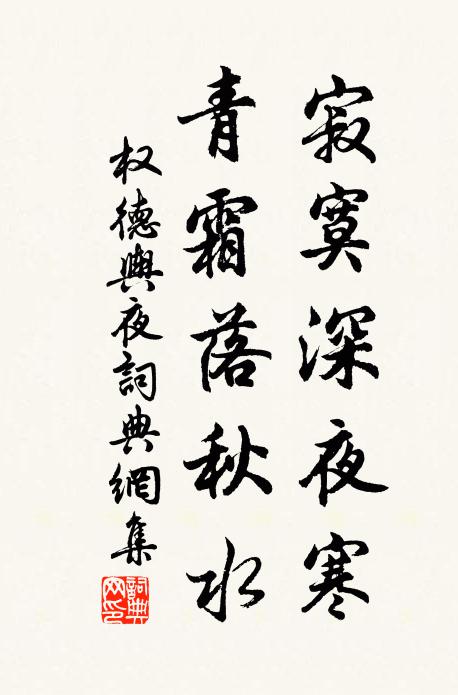 寂寞深夜寒
青霜落秋水
权德輿夜詞典網集
詞典网印